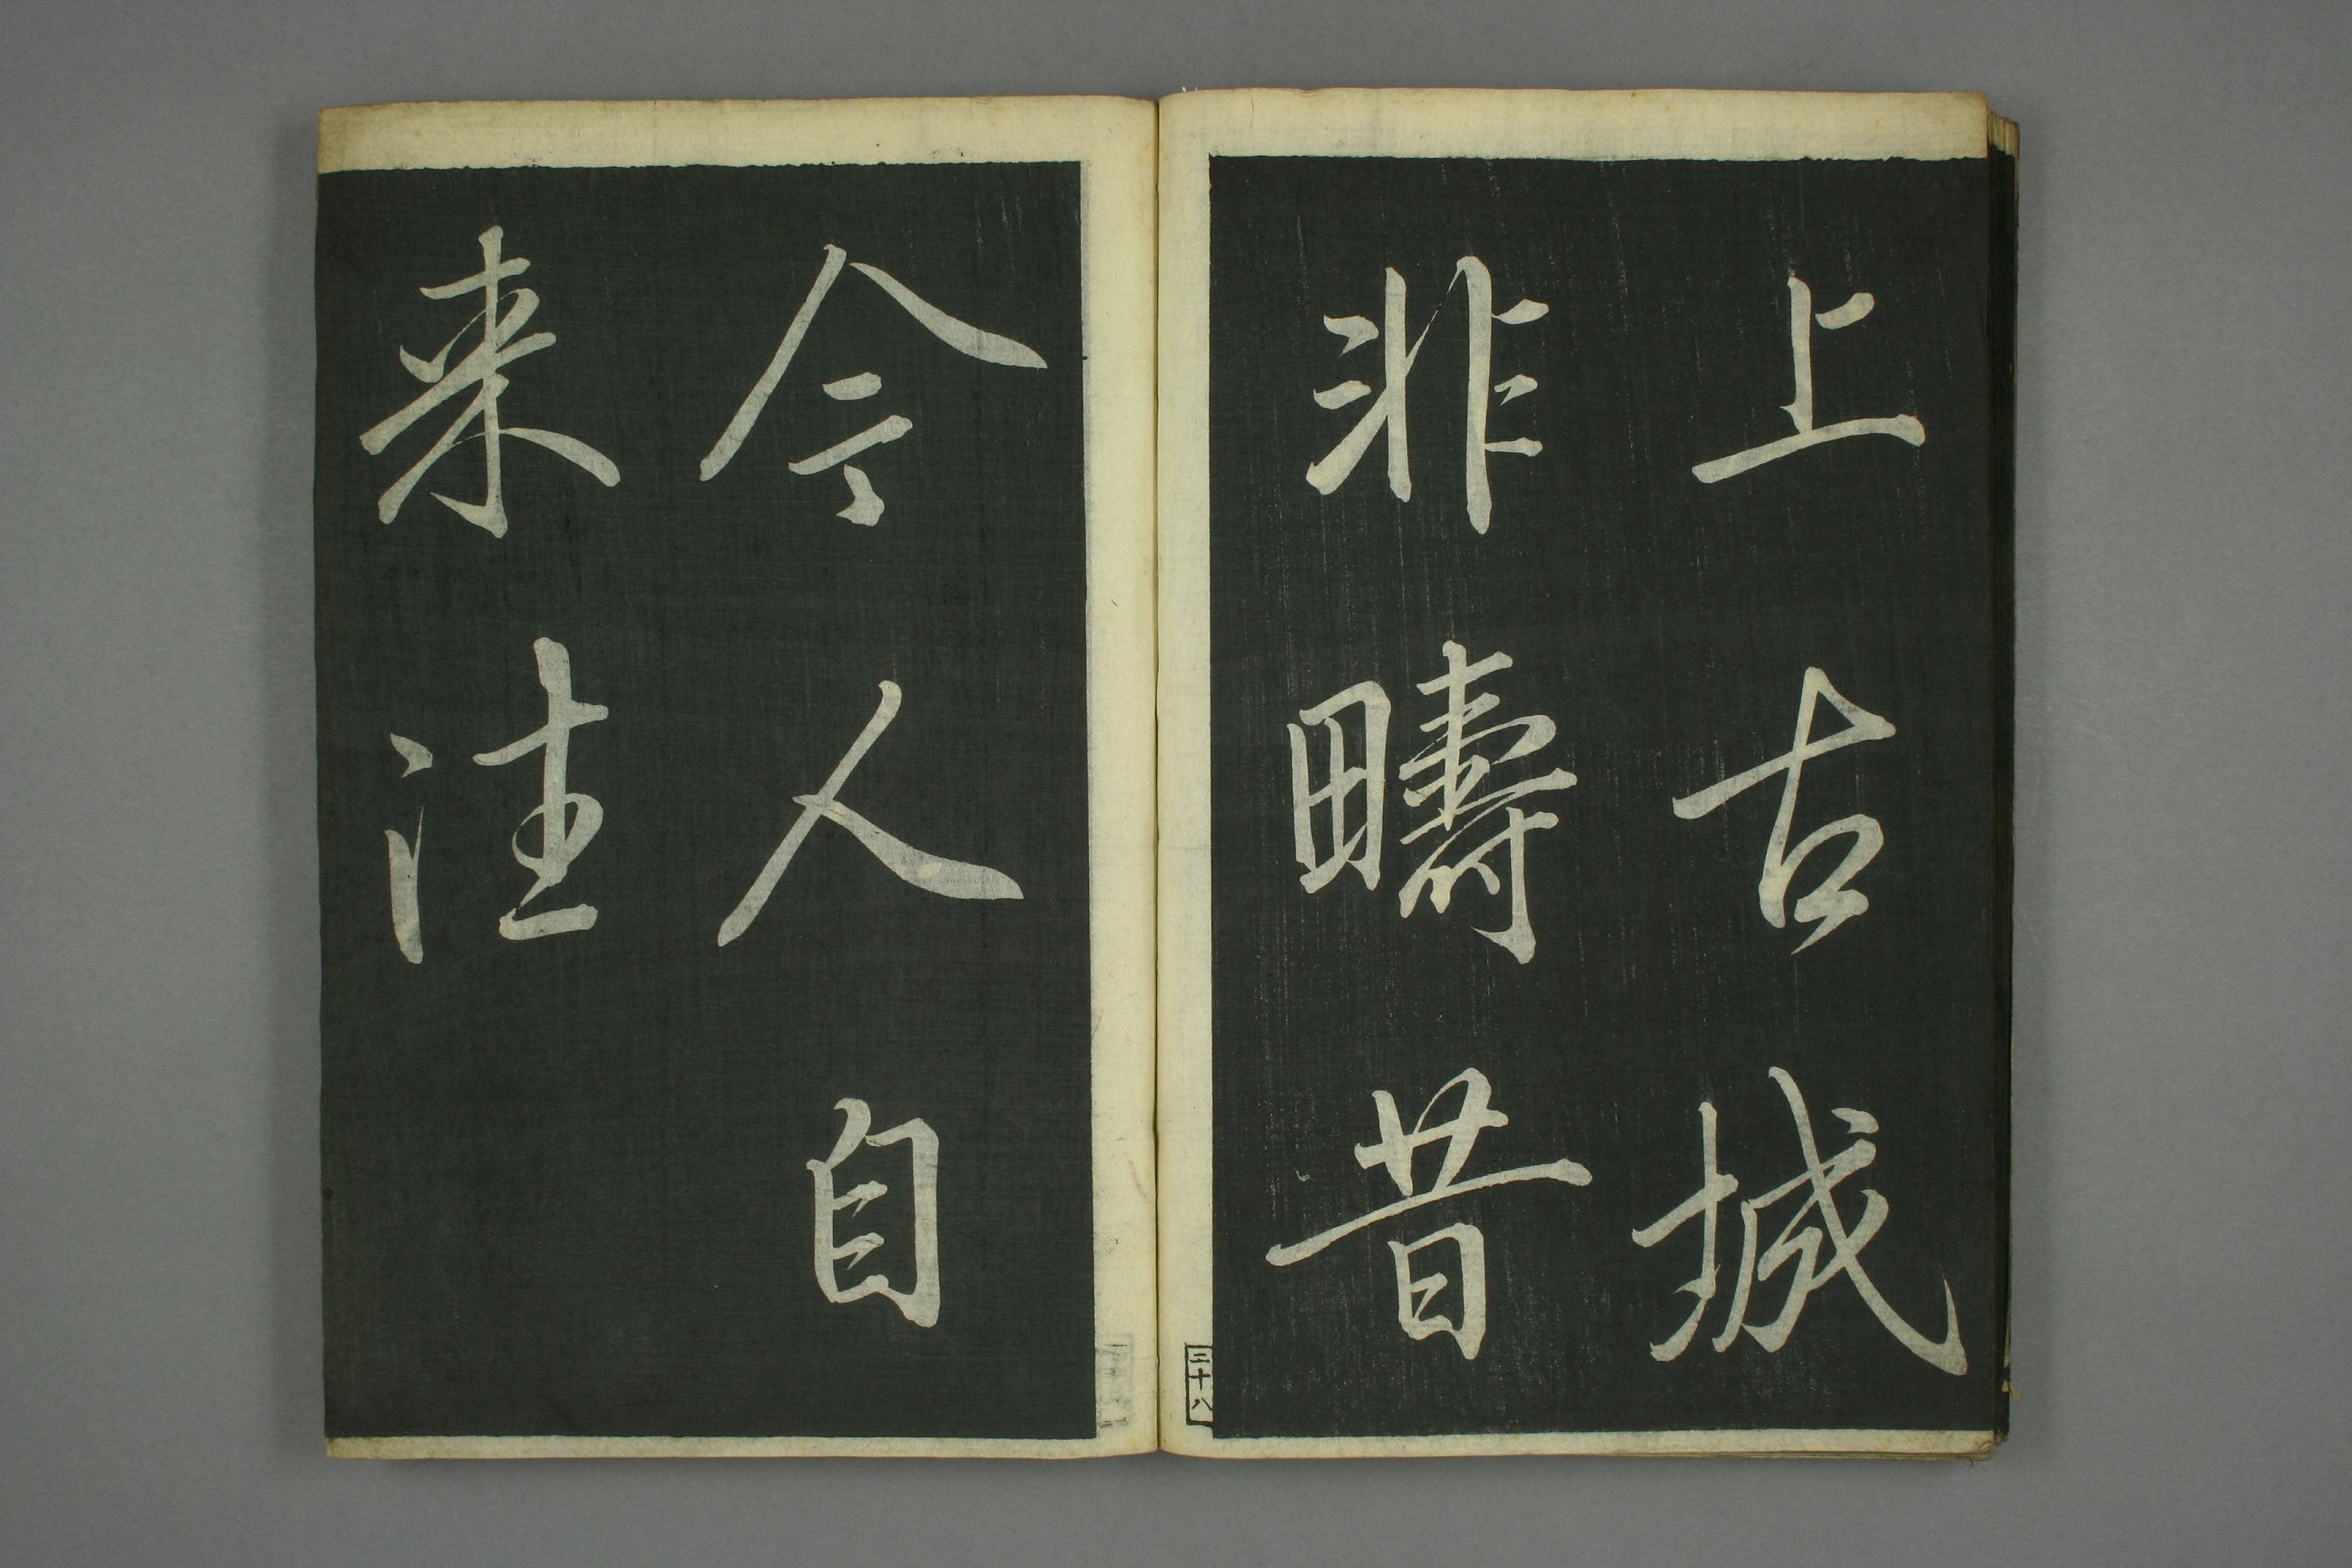 上古城
非疇昔
今人自
来往
三十八